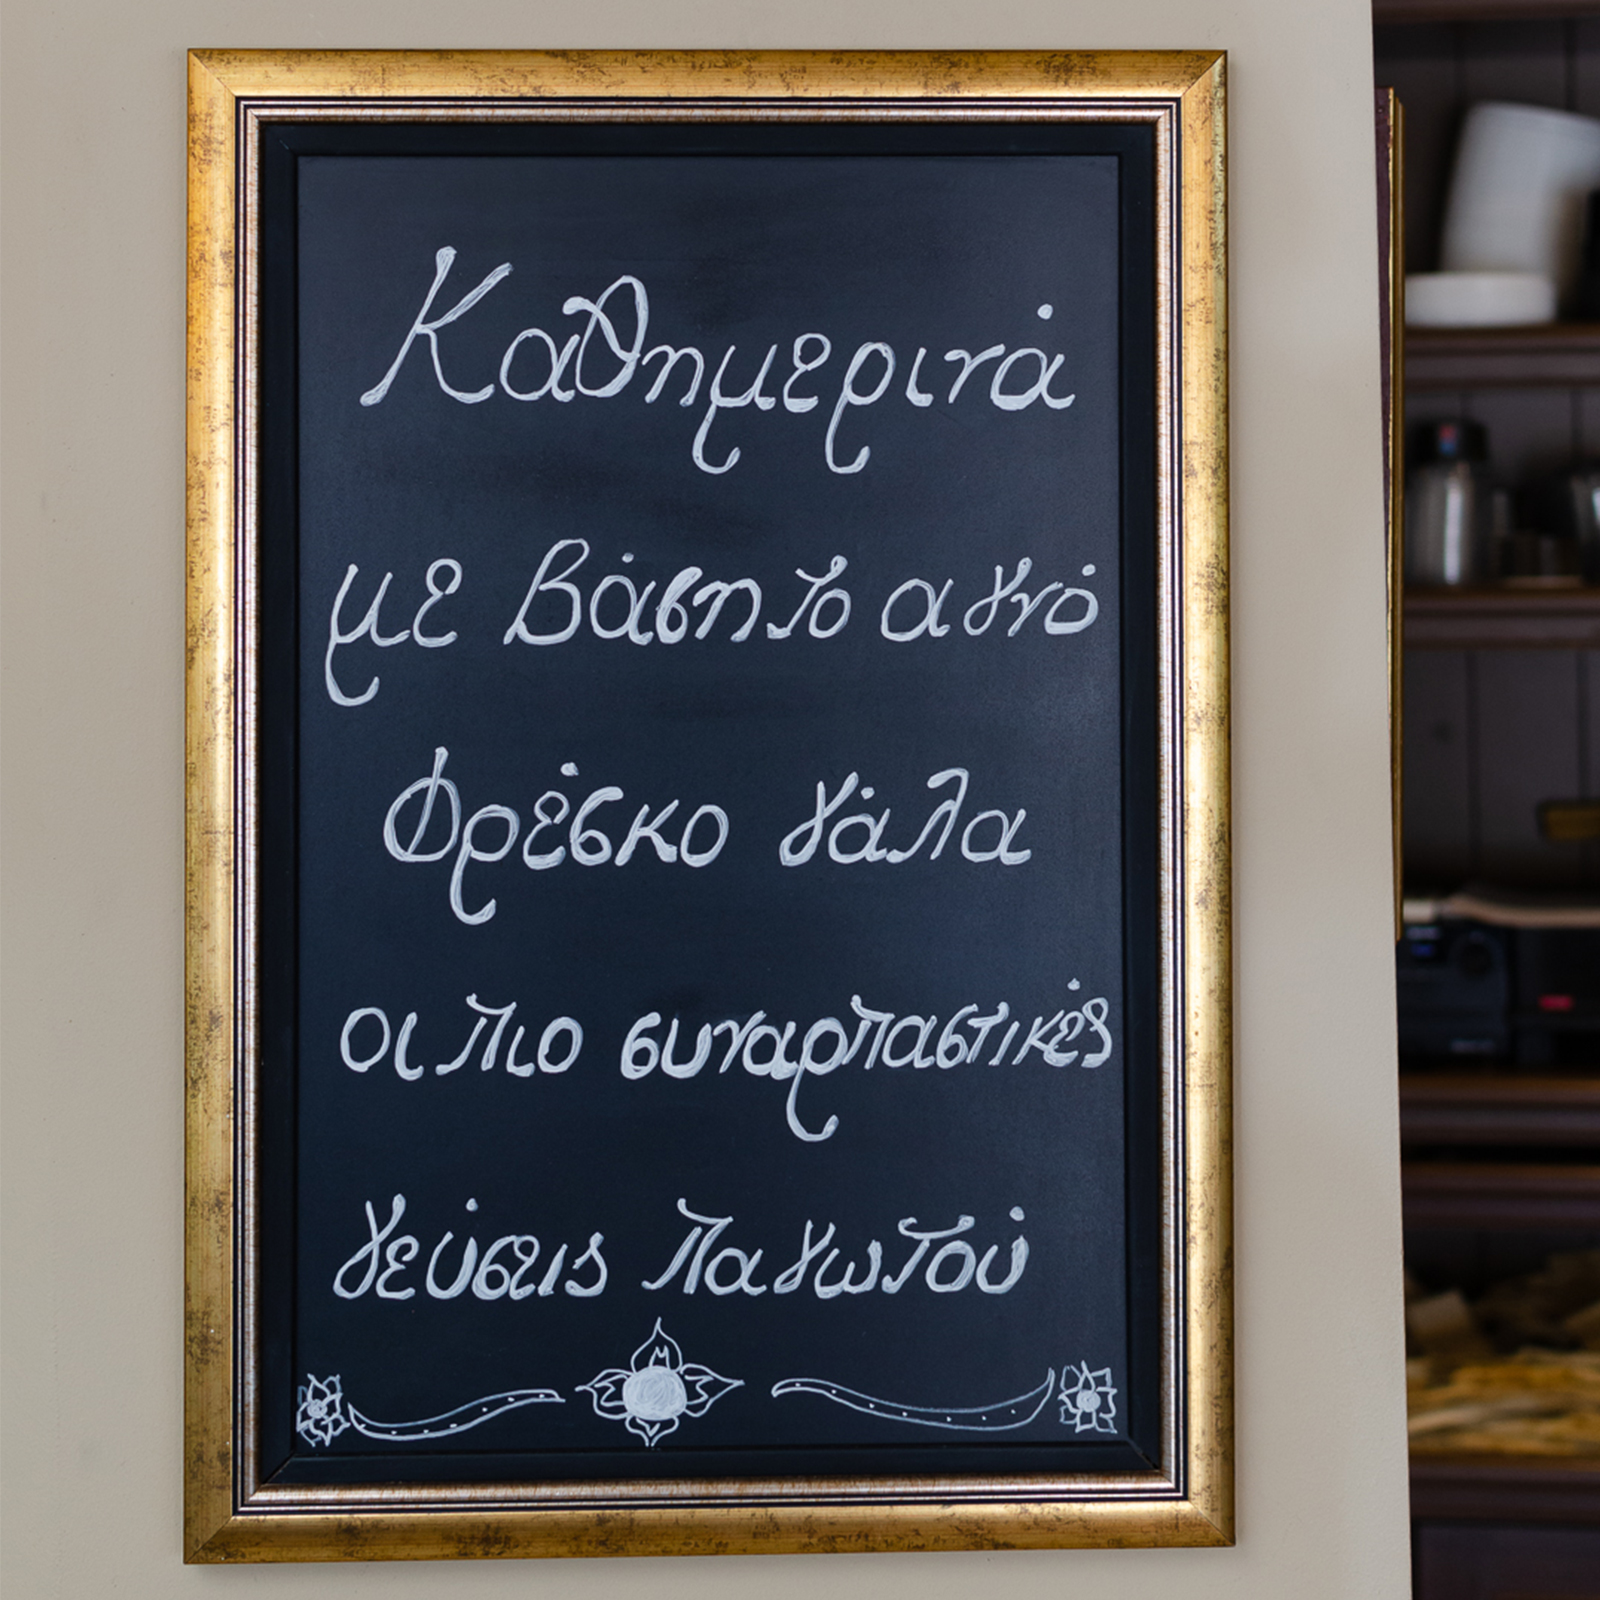 Καθημερινά
με Βάση το αγνό
Φρέσκο γάλα
οι πιο συναρπαστικές
γεύσεις παγωτού